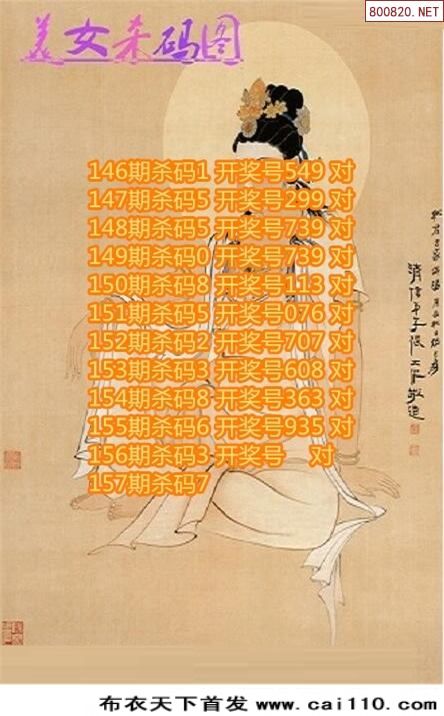 800820.NET
美女杀码图
146期杀码1 开奖号549 对
147期杀码5 开奖号299 对
148期杀码5 开奖号739 对
149期杀码0 开奖号739 对
150期杀码8 开奖号113 对
151期杀码5 开奖号076 对
152期杀码2 开奖号707 对
153期杀码3 开奖号608 对
154期杀码8 开奖号363 对
155期杀码6 开奖号935 对
156期杀码3 开奖号 对
157期杀码7
布衣天下首发 www.cai110.com